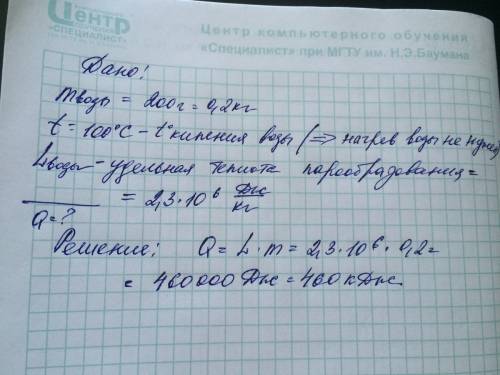 Центр
«СПЕЦИАЛИСТ»
Центр компьютерного обучения
«Специалист» при МГТУ им. Н.Э.Баумана
Дано:
mводы = 200г = 0,2кг
t = 100°C – t° кипения воды (=> нагрев воды не нужен)
Lводы – удельная теплота парообразования =
= 2,3·10⁶ Дж/кг
Q = ?
Решение: Q = L·m = 2,3·10⁶·0,2 =
= 460000 Дж = 460 кДж.